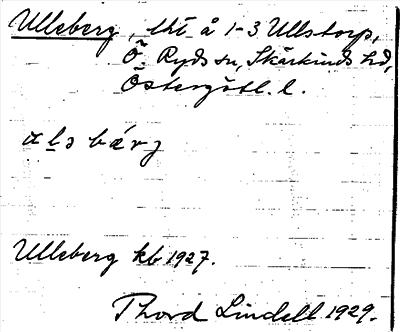 Ulleberg, tht å 1-3 Ullstorp,
Ö. Ryds sn, Skärkinds hd,
Östergötl. l.
bárj
Ulleberg kb 1927.
Thord Lindell 1929.